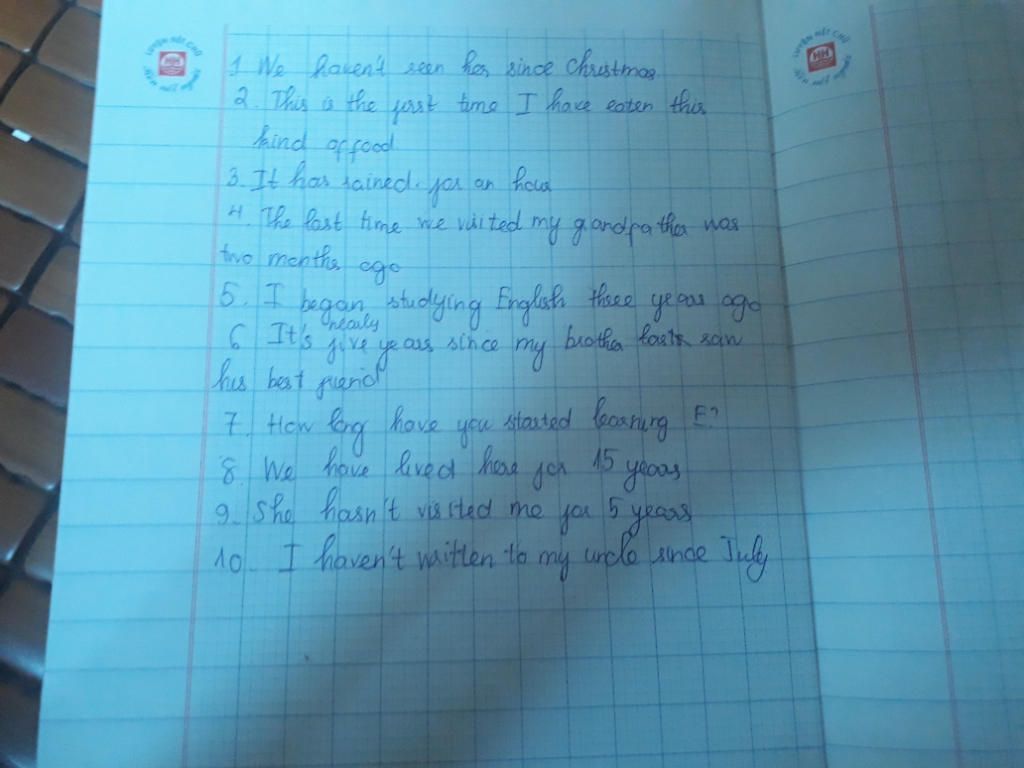 LUYỆN NÉT CHỮ
HH
LUYỆN NÉT CHỮ
HH
1 We haven't seen her since Christmas
2. This is the first time I have eaten this
kind of food
3. It has rained for an hour
4. The last time we visited my grandfather was
two months ago
5. I began studying English three years ago
nearly
6 It's five years since my brother last saw
his best friend
7. How long have you started learning E?
8. We have lived here for 15 years
9. She hasn't visited me for 5 years
10. I haven't written to my uncle since July